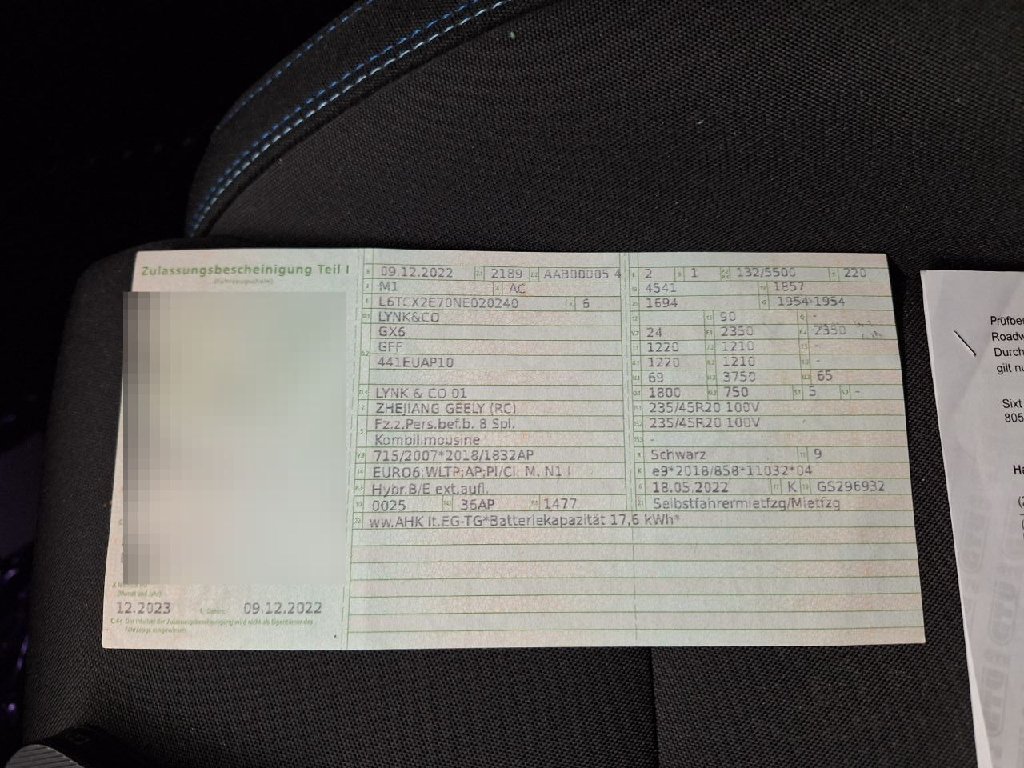 Zulassungsbescheinigung Teil I
09.12.2022 2189 AAB00005 4
M1 AC
L6TCX2E70NE020240 6
LYNK&CO
GX6
GFF
441EUAP10
LYNK & CO 01
ZHEJIANG GEELY (RC)
Fz.z.Pers.bef.b. 8 Spl.
Kombilimousine
715/2007*2018/1832AP
EURO6;WLTP;AP;PI/CI; M, N1 I
Hybr.B/E ext.aufl.
0025 36AP 1477
ww.AHK lt.EG-TG*Batteriekapazität 17,6 kWh*
2 1 132/5500 220
4541 1857
1694 1954-1954
90 -
24 2350 2350
1220 1210 -
1220 1210 -
69 3750 65
1800 750 5 -
235/45R20 100V
235/45R20 100V
-
Schwarz 9
e9*2018/858*11032*04
18.05.2022 K GS296932
Selbstfahrermietfzg/Mietfzg
12.2023 09.12.2022
Prüfber
Roadw
Durch
gilt nu
Sixt
805
Ha